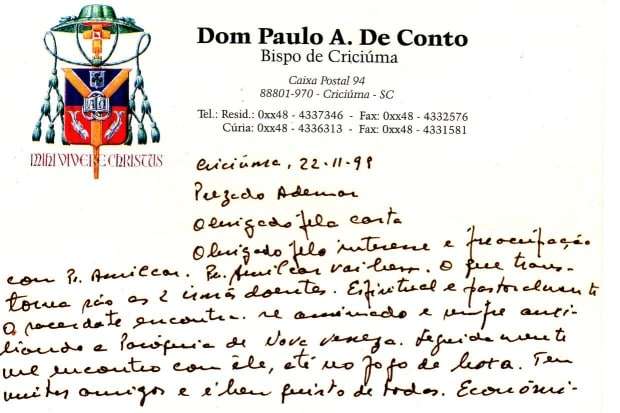 Dom Paulo A. De Conto
Bispo de Criciúma
Caixa Postal 94
88801-970 - Criciúma - SC
Tel.: Resid.: 0xx48 - 4337346 - Fax: 0xx48 - 4332576
Cúria: 0xx48 - 4336313 - Fax: 0xx48 - 4331581
MIHI VIVERE CHRISTUS
Criciúma, 22-11-99
Prezado Ademar
Obrigado pela carta
Obrigado pelo interesse e preocupação
com Pe. Amilcar. Pe. Amilcar vai bem. O que trans-
torna são as 2 irmãs doentes. Espiritual e pastoralmente
O sacerdote encontra-se animado e sempre auxi-
liando a Paróquia de Nova Veneza. Seguidamente
me encontro com êle, até no jogo de bocha. Tem
muitos amigos e é bem quisto de todos. Econômi-